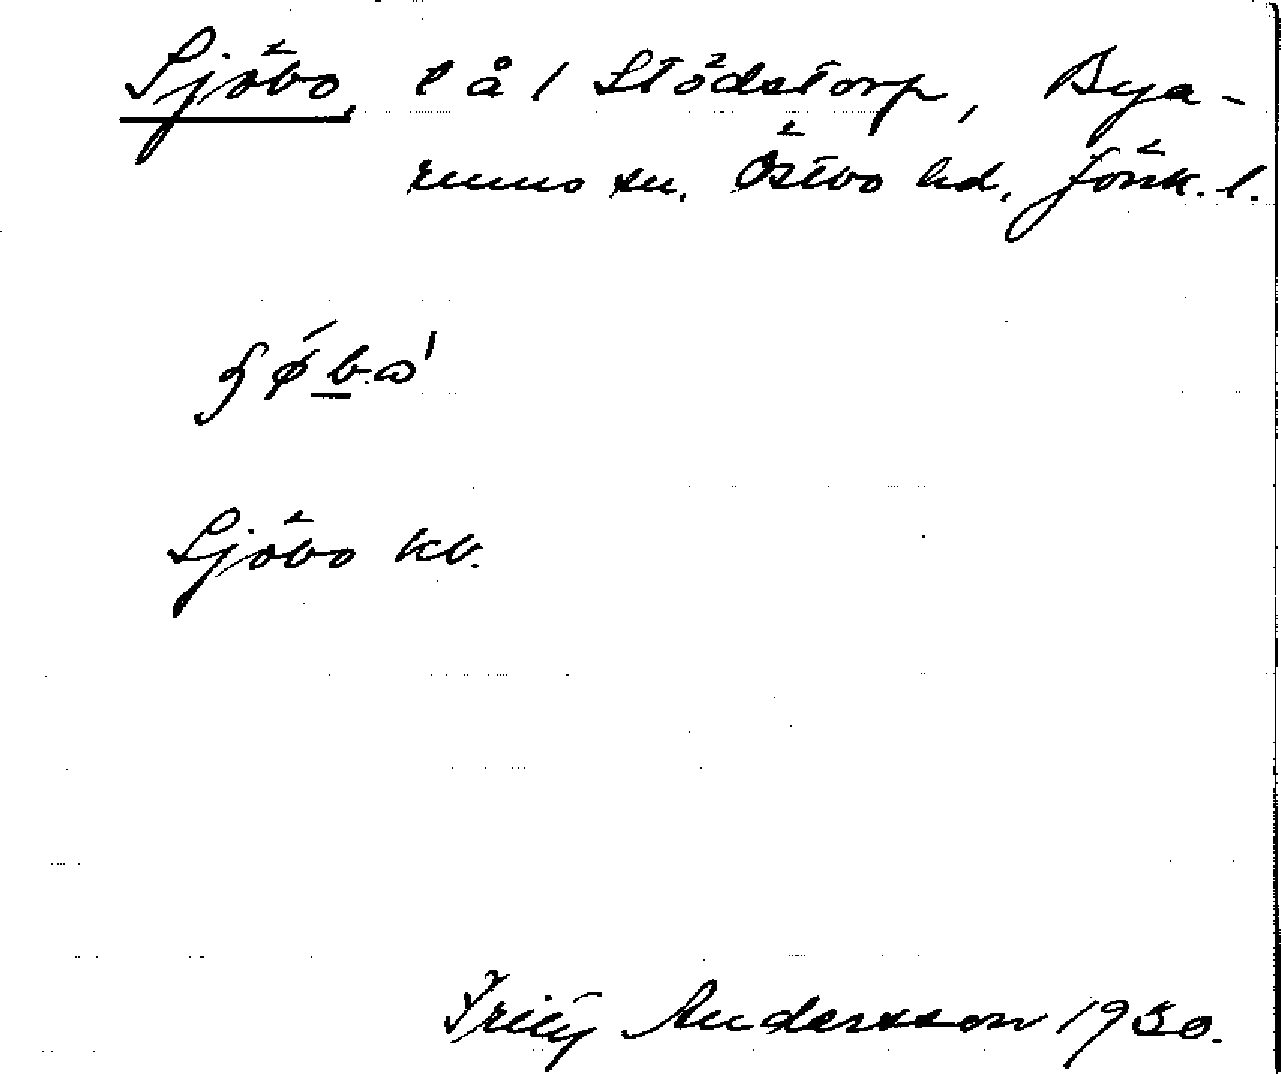 Sjöbo, l å / Stödstorp, Bya-
rums sn. Östbo hd. Jönk. l.
Sjöbo kb.
Fritz Andersson 1930.